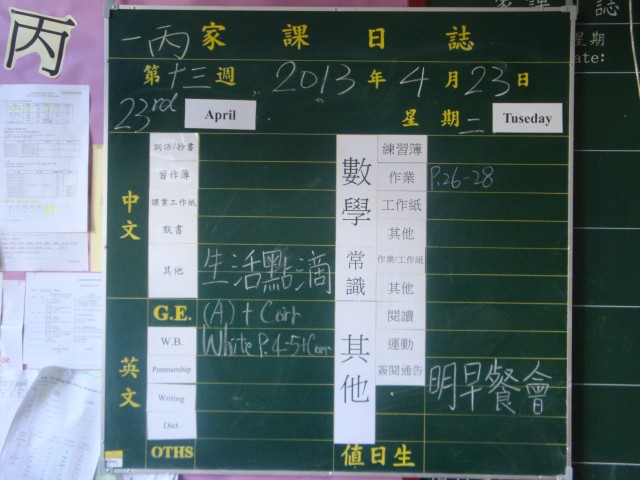 丙
一丙家課日誌
第十三週 2013年4月23日
23rd April 星期二 Tuseday
中文
詞語/抄書
習作簿
課業工作紙
默書
其他 生活點滴
英文
G.E. (A) + Corr
W.B. White P.4-5+Corr
Penmanship
Writing
Dict.
OTHS
數學
練習簿
作業 P.26-28
工作紙
其他
常識
作業/工作紙
其他
其他
閱讀
運動
簽閱通告 明早餐會
值日生
家課日誌
星期
Date: